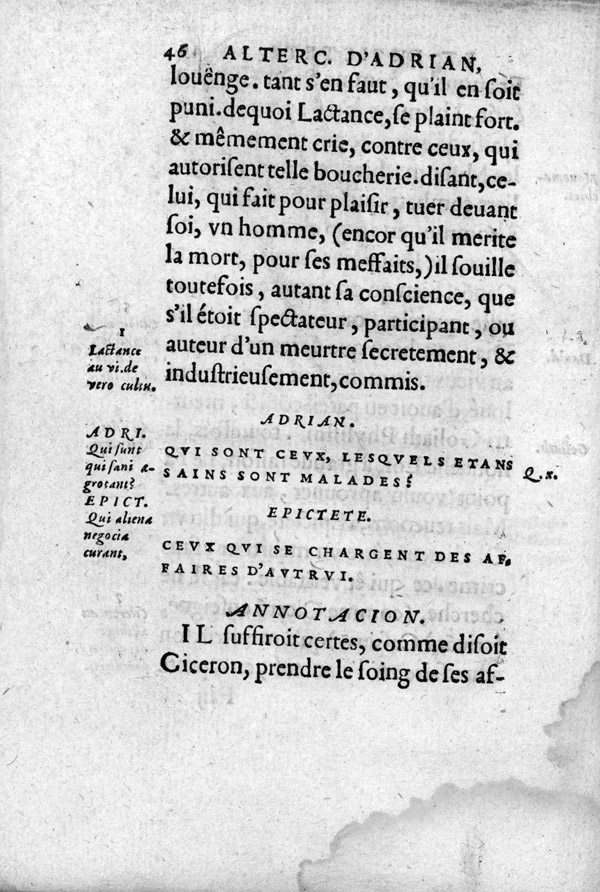 46 ALTERC. D'ADRIAN,
louënge. tant s'en faut, qu'il en ſoit
puni. dequoi Lactance, ſe plaint fort.
& mêmement crie, contre ceux, qui
autoriſent telle boucherie. diſant, ce-
lui, qui fait pour plaiſir, tuer deuant
ſoi, vn homme, (encor qu'il merite
la mort, pour ſes meffaits,) il ſouille
toutefois, autant ſa conſcience, que
s'il étoit ſpectateur, participant, ou
auteur d'un meurtre ſecretement, &
induſtrieuſement, commis.
1
Lactance
au vi. de
vero cultu.
ADRIAN.
QVI SONT CEVX, LESQVELS ETANS
SAINS SONT MALADES?
Q. x.
ADRI.
Qui ſunt
qui ſani æ-
grotant?
EPICT.
Qui aliena
negocia
curant,
EPICTETE.
CEVX QVI SE CHARGENT DES AF-
FAIRES D'AVTRVI.
ANNOTACION.
IL ſuffiroit certes, comme diſoit
Ciceron, prendre le ſoing de ſes af-